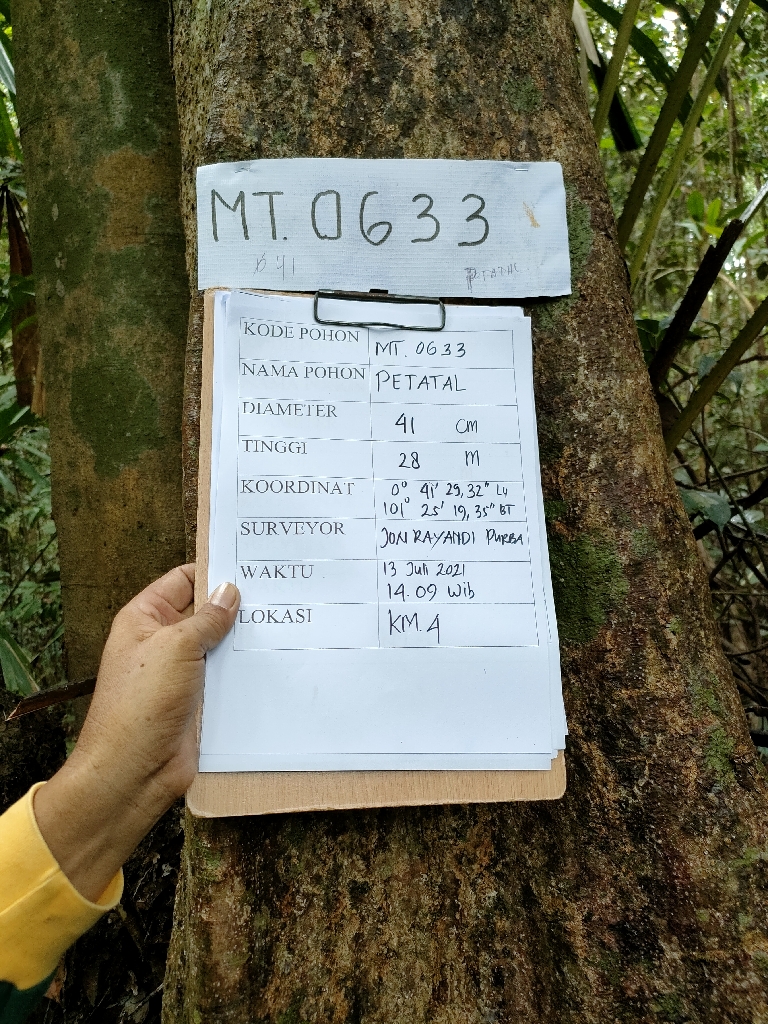 MT. 0633
Ø 41 PETATAL
KODE POHON MT. 0633
NAMA POHON PETATAL
DIAMETER 41 CM
TINGGI 28 M
KOORDINAT 0° 41' 29,32" LU
101° 25' 19,35" BT
SURVEYOR JON RAYANDI PURBA
WAKTU 13 Juli 2021
14.09 Wib
LOKASI KM.4